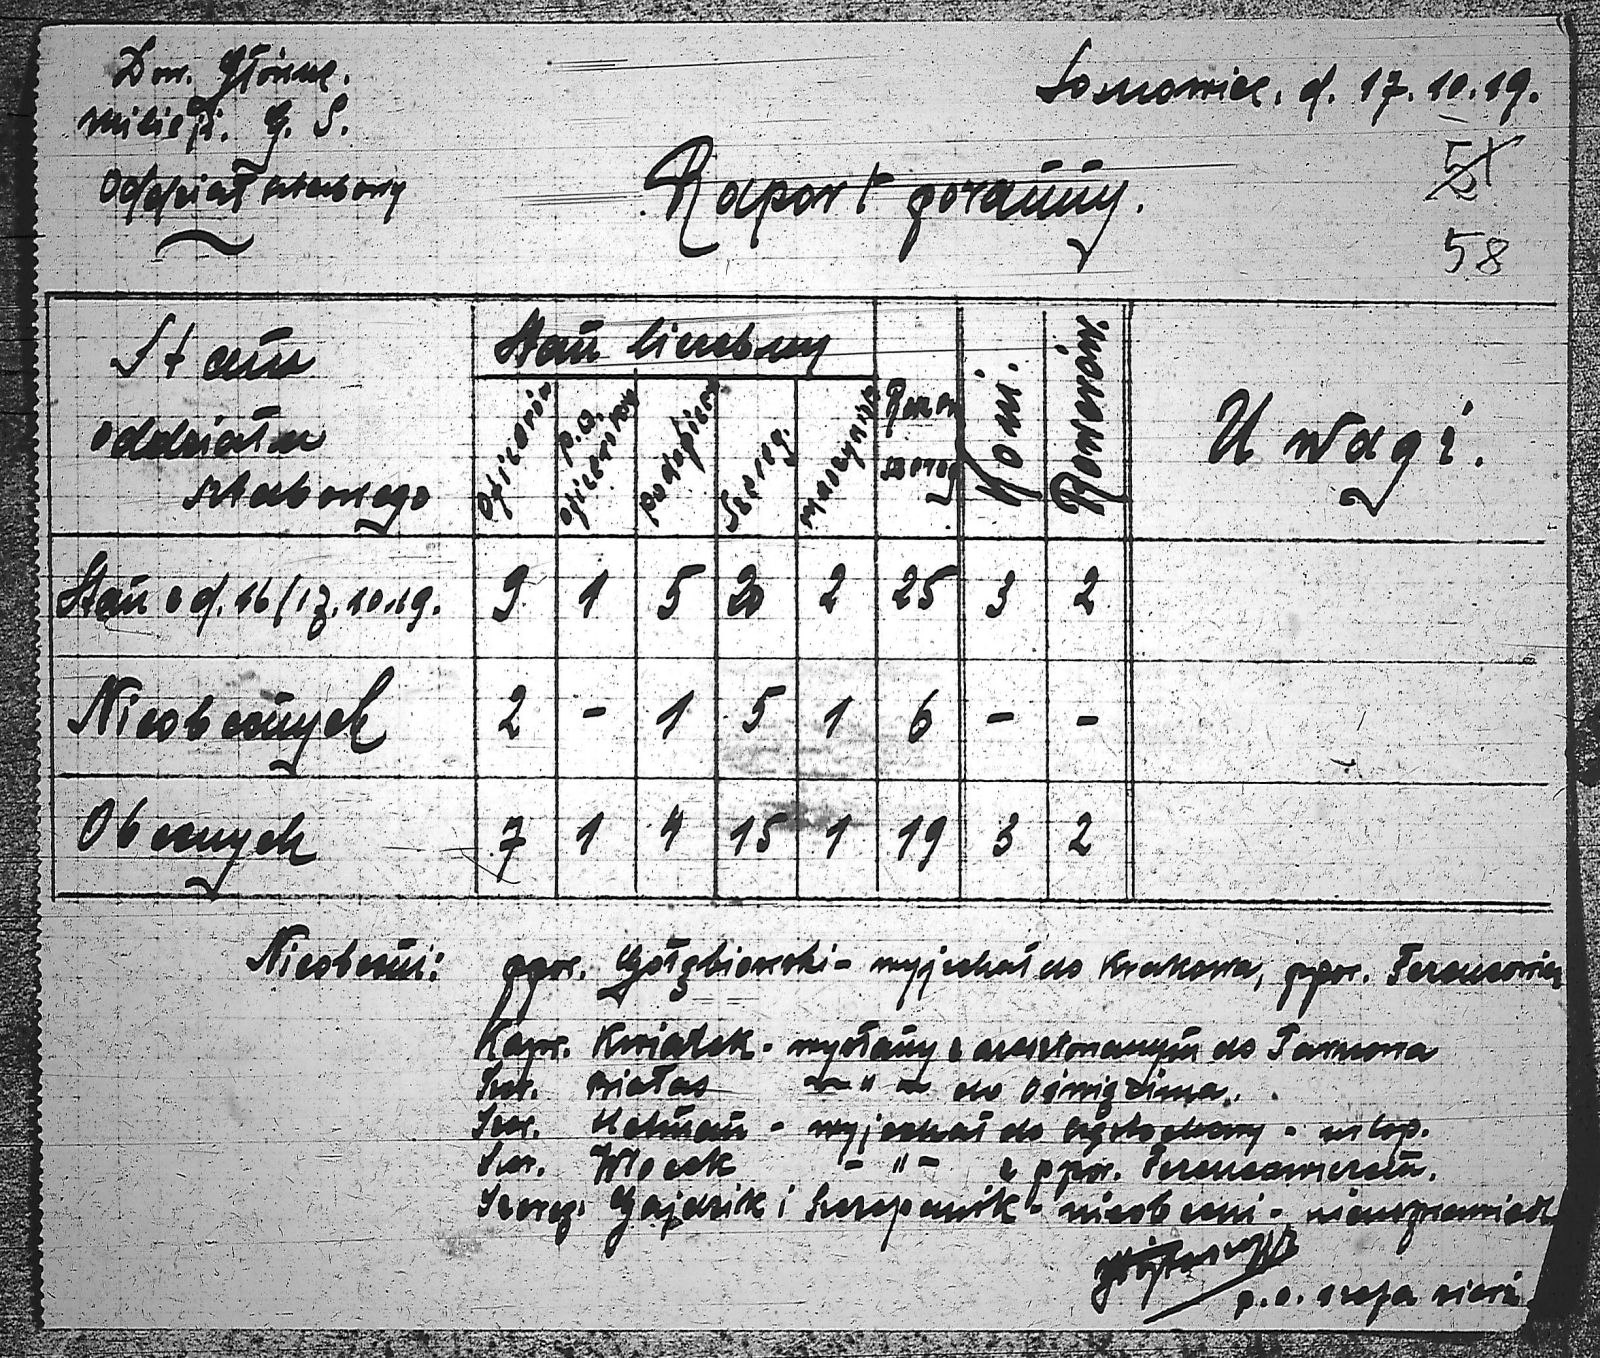 Dow. Główne.
Milicji. G. S.
Oddział sztabowy
Sosnowiec. d. 17.10.19.
51
58
Raport poranny.
Stan
oddziału
sztabowego
Stan liczebny
Oficerów
p.o. oficerów
podofic.
Szereg.
Razem
szereg.
Koni.
Rowerów.
Uwagi.
Stan z d. 16/17.10.19. 9 1 5 20 2 25 3 2
Nieobecnych 2 - 1 5 1 6 - -
Obecnych 7 1 4 15 1 19 3 2
Nieobecni: ppor. Gołębiowski - wyjechał do Krakowa, ppor.
Kapr. Kwiatek - wysłany z aresztowanym do Tarnowa
Szer. Białas -"- do Oświęcima.
Szer. - wyjechał do Częstochowy - urlop.
Szer. Włosek -"- z ppor.
Szereg. Gajdzik i Szczepanik - nieobecni - nieusprawiedl
p.o. szefa